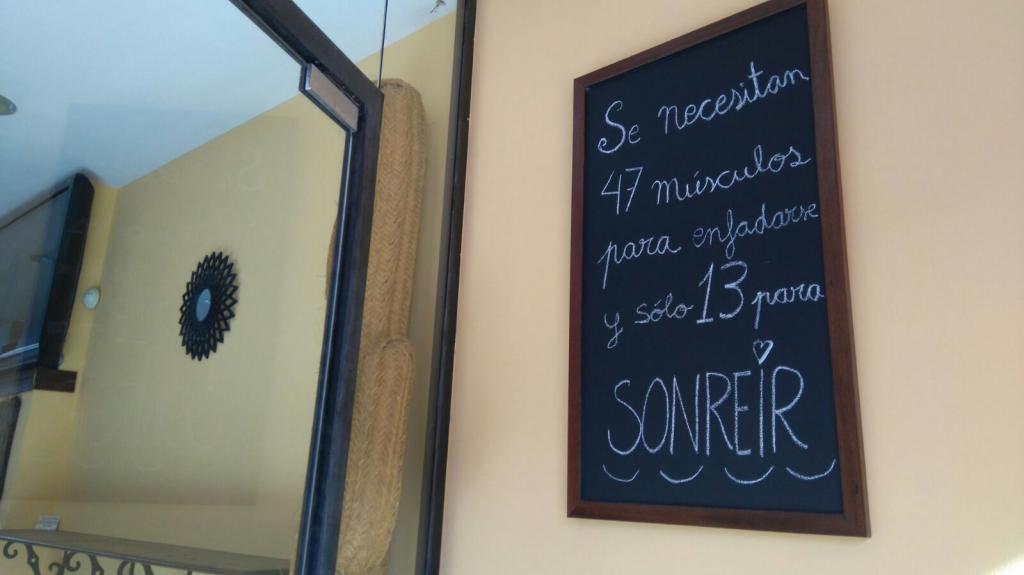 Se necesitan
47 músculos
para enfadarse
y sólo 13 para
SONREIR